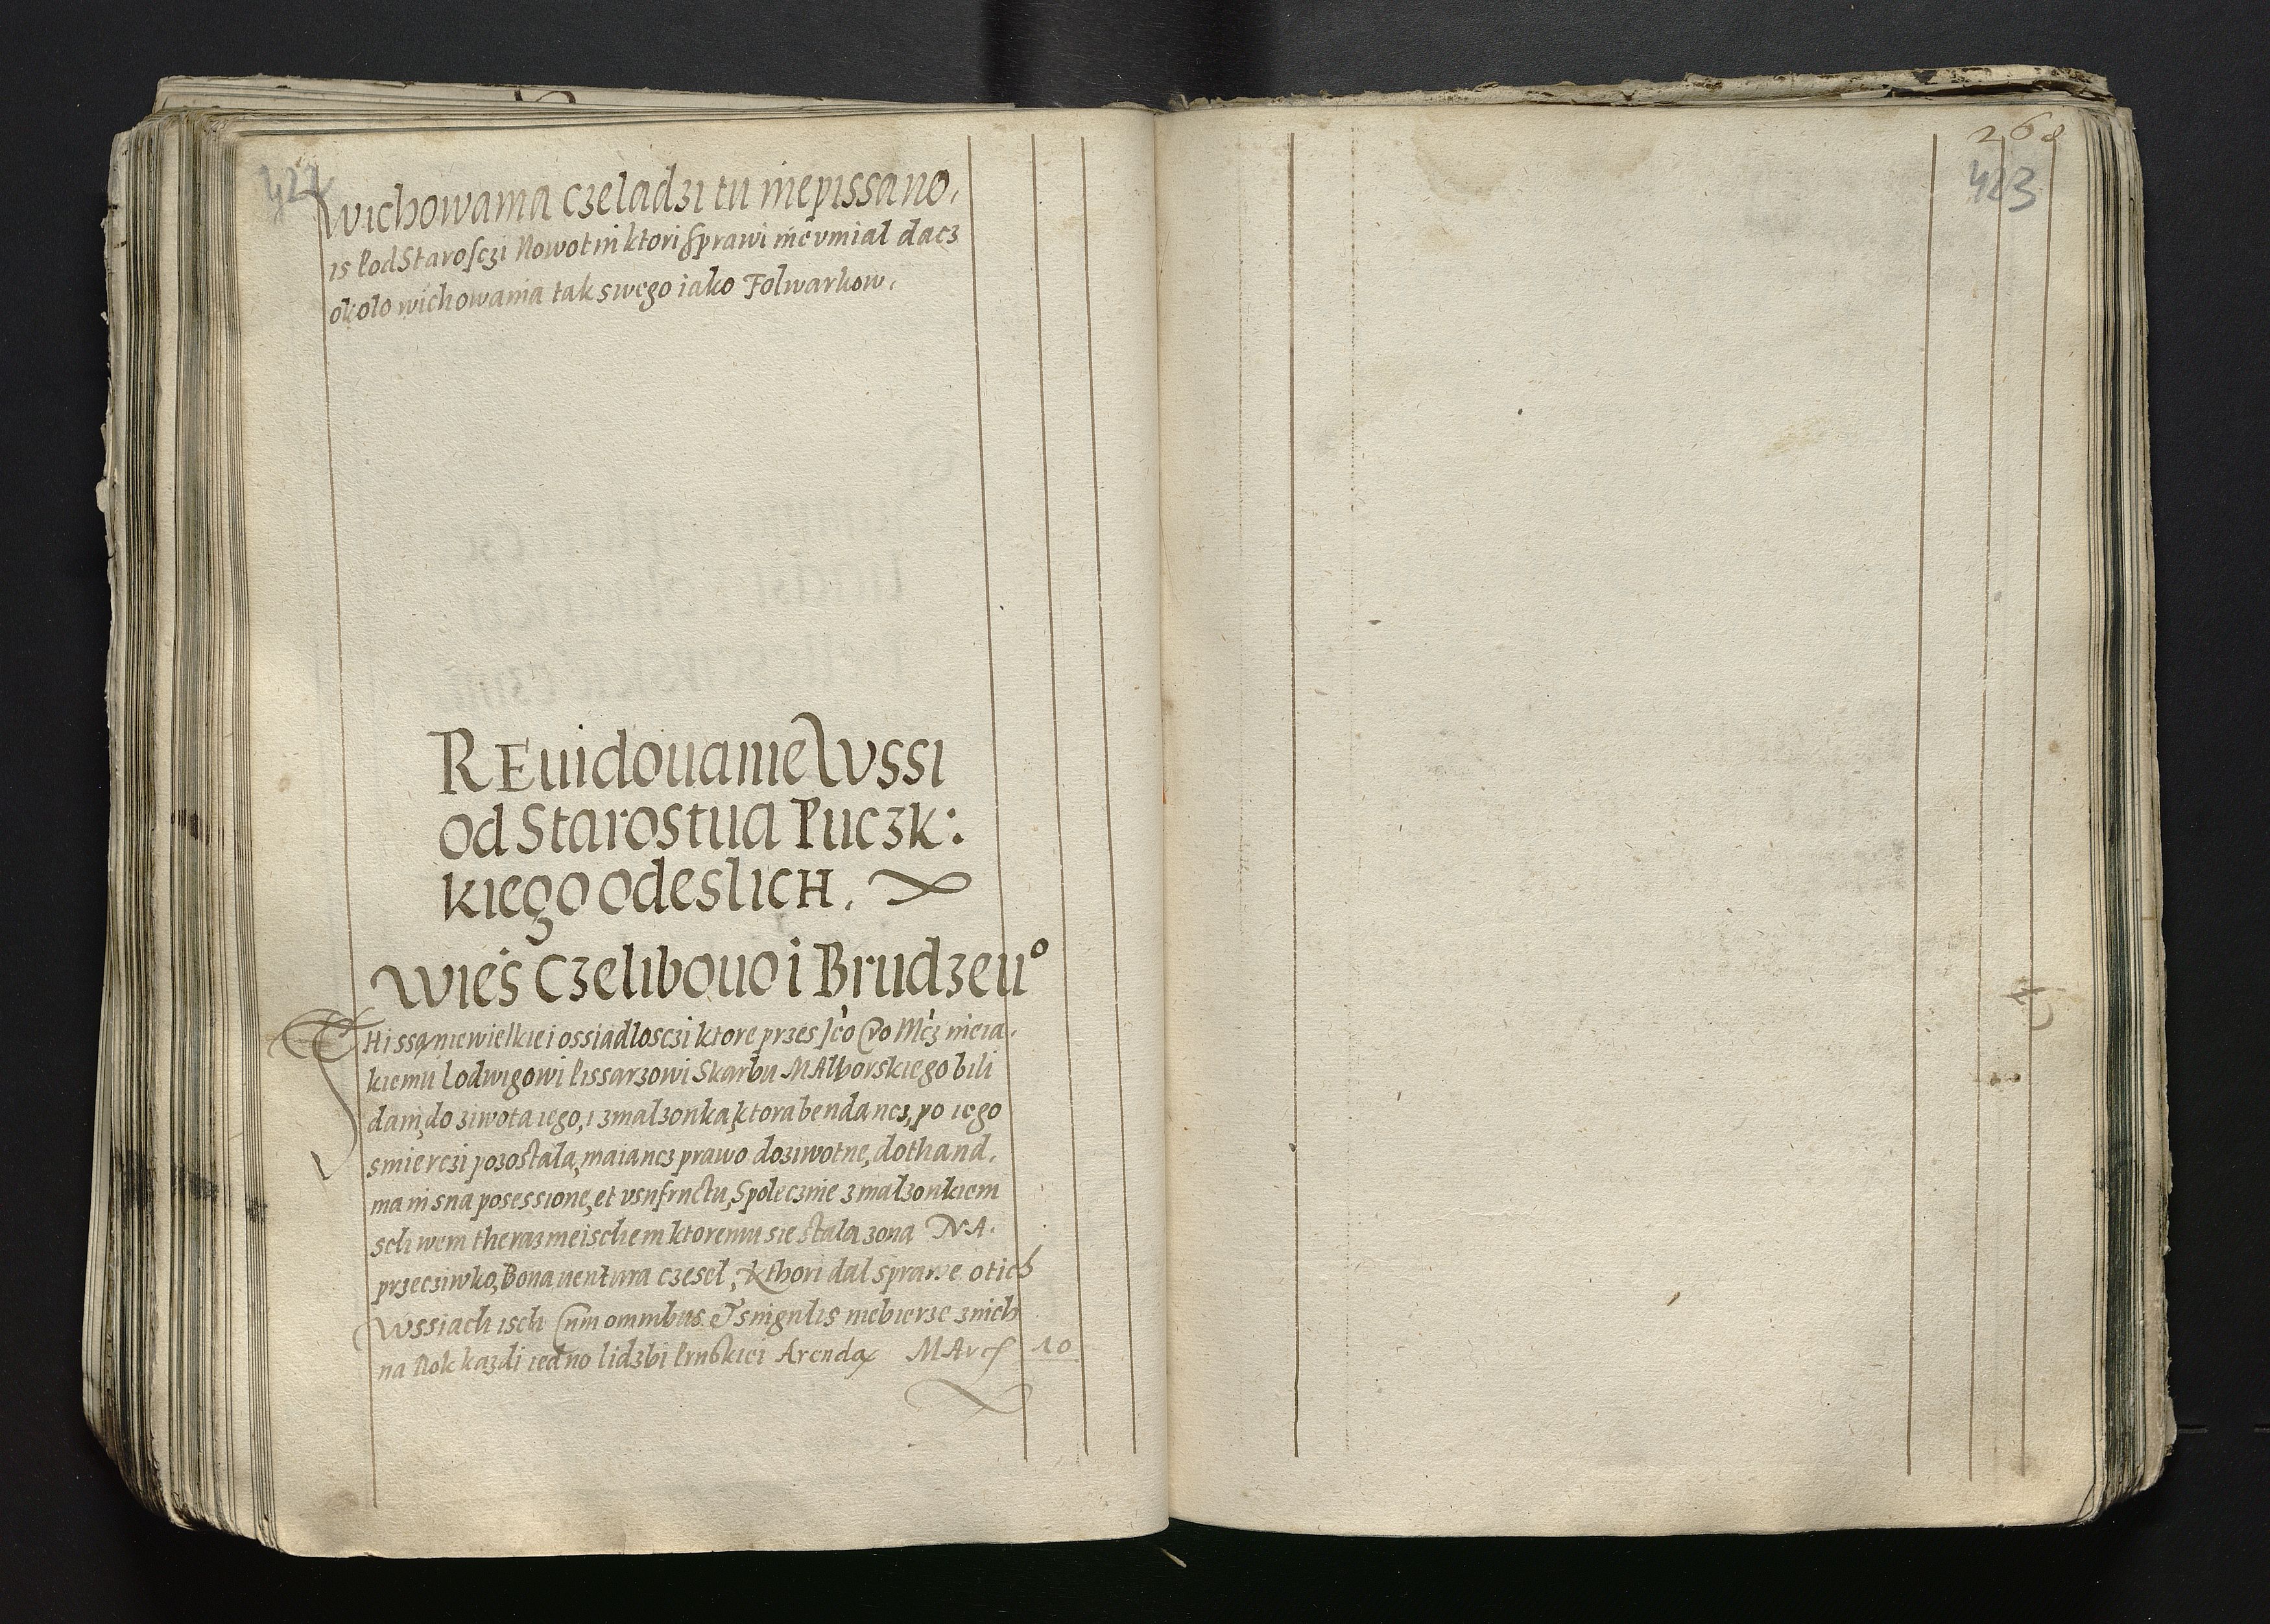 422
Wichowania czeladzi tu niepissano,
is PodStarosczi Nowotni ktori sprawi nie vmial dacz
okolo wichowania tak swego iako Folwarkow.
REuidouanie Wssi
od Starostua Puczk:
kiego odeslicH.
Wies Czelibouo i Brudzeuº
THi ssą niewielkiei ossiadlosczi ktore przes Jeº Kro Mcz nieia.
kiemu Lodwigowi Pissarzowi Skarbu MAlborskiego bili
dani, do ziwota iego, i zmalzonka, ktora bendancz, po iego
smierczi pozostala, maiancz prawo doziwotne, dothand,
ma ni sna posessione, et vsufructu, Spolecznie z malzonkiem
sch wem therazneischem ktoremu sie stala zona NA.
przecziwko, Bonauentura czesel, kthori dal sprawe o tich
Wssiach isch Cum omnibus Et singulis niebierze z nich
na Rok kazdi iedno lidzbi Pruskiei Arendą MArc 10
268
423